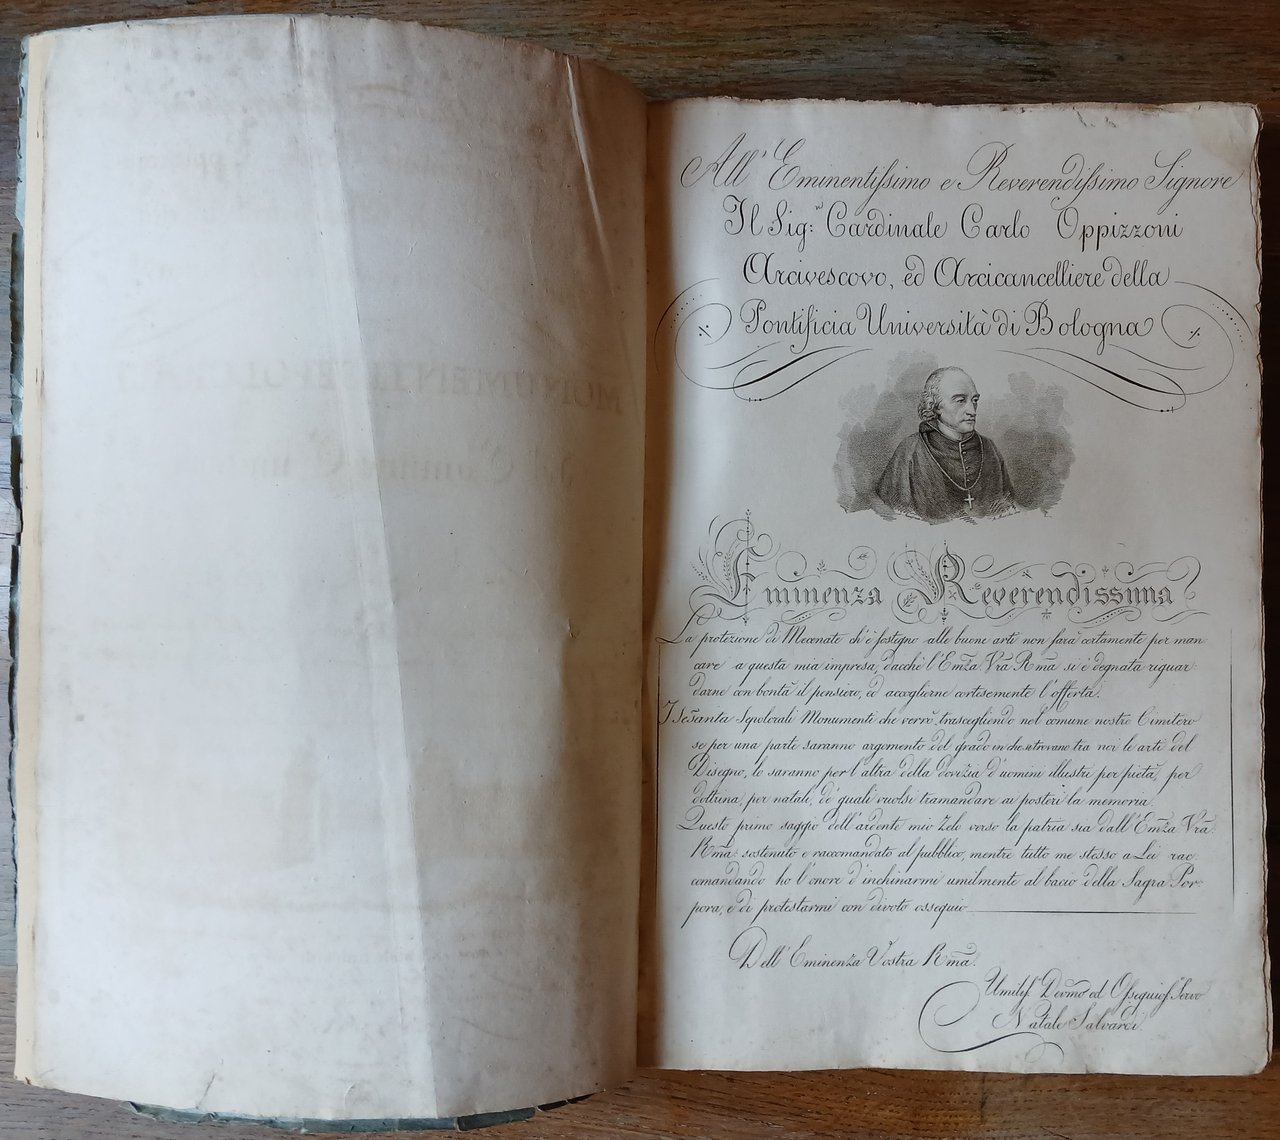 All' Eminentissimo e Reverendissimo Signore
Il Sig: Cardinale Carlo Oppizzoni
Arcivescovo, ed Arcicancelliere della
Pontificia Università di Bologna
Eminenza Reverendissima
La protezione di Mecenate ch'è sostegno alle buone arti non farà certamente per man
care a questa mia impresa, dacchè l'Emza Vra Rma si è degnata riguar:
darne con bontà il pensiero, ed accoglierne cortesemente l'offerta.
Sepolcrali Monumenti che verrò trascegliendo nel comune nostro Cimitero
se per una parte saranno argomento del grado in che si trovano tra noi le arti del
Disegno, lo saranno per l'altra della dovizia d'uomini illustri per pietà, per
dottrina, per natali, de' quali vuolsi tramandare ai posteri la memoria.
Questo primo saggio dell'ardente mio zelo verso la patria sia dall'Emza Vra
Rma: sostenuto e raccomandato al pubblico, mentre tutto me stesso a Lei rac
comandando ho l'onore d'inchinarmi umilmente al bacio della Sagra Por
pora, e di protestarmi con divoto ossequio
Dell'Eminenza Vostra Rma.
Umiliss. Devmo ed Ossequios. Servo
Natale Salvardi